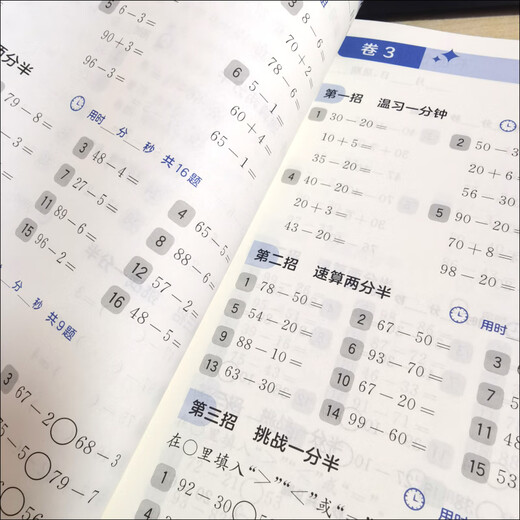 5 6-3=
90+3=
96-3=
3 8-6
70+2=
78-6=
6 5-1=
60+4=
65-1=
两分半
用时 分 秒 共16题
79-8=
3 48-4=
7 27-5=
11 89-6=
15 96-2=
4 65-5=
8 88-6=
12 57-2=
16 48-5=
分 秒 共9题
3 67-2○68-3
75-5○79-7
卷3
第一招 温习一分钟
1 30-20=
10+5=
35-20=
2 50-3
20+6
56-30
4 40-20=
20+3=
43-20=
5 90-20
70+8=
98-20=
第二招 速算两分半
用时
1 78-50=
2 67-50=
3
5 54-20=
6 93-70=
7
9 88-10=
10 67-20=
11 48
13 63-30=
14 99-60=
15 53
第三招 挑战一分半
在○里填入“>”“<”或“=
1 92-30○55